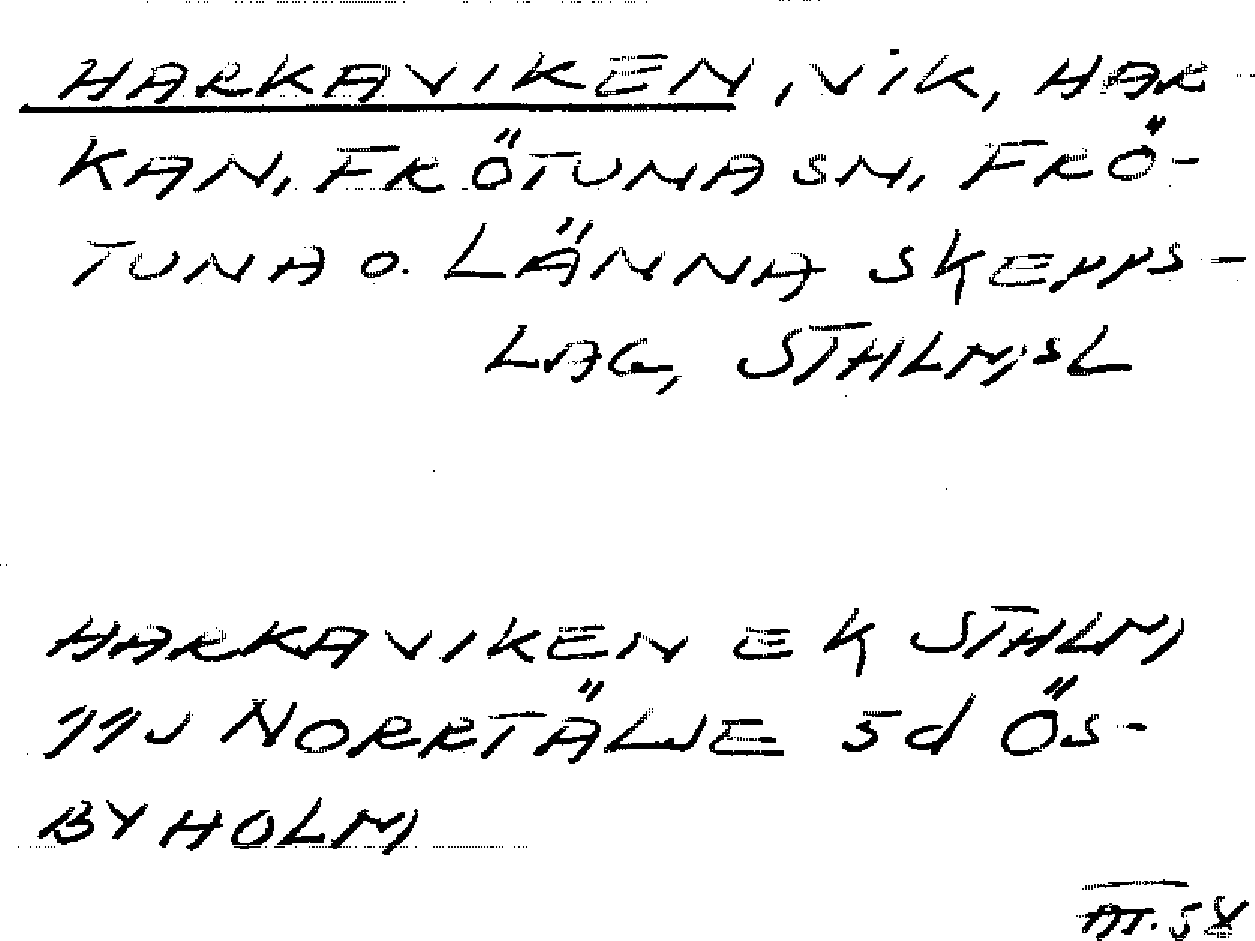 HARKAVIKEN, VIK, HAR-
KAN, FRÖTUNA SN, FRÖ-
TUNA O. LÄNNA SKEPPS-
LAG, STHLM,S L
HARKAVIKEN EK STHLM
11J NORRTÄLJE 5d ÖS-
BYHOLM
AT. 58